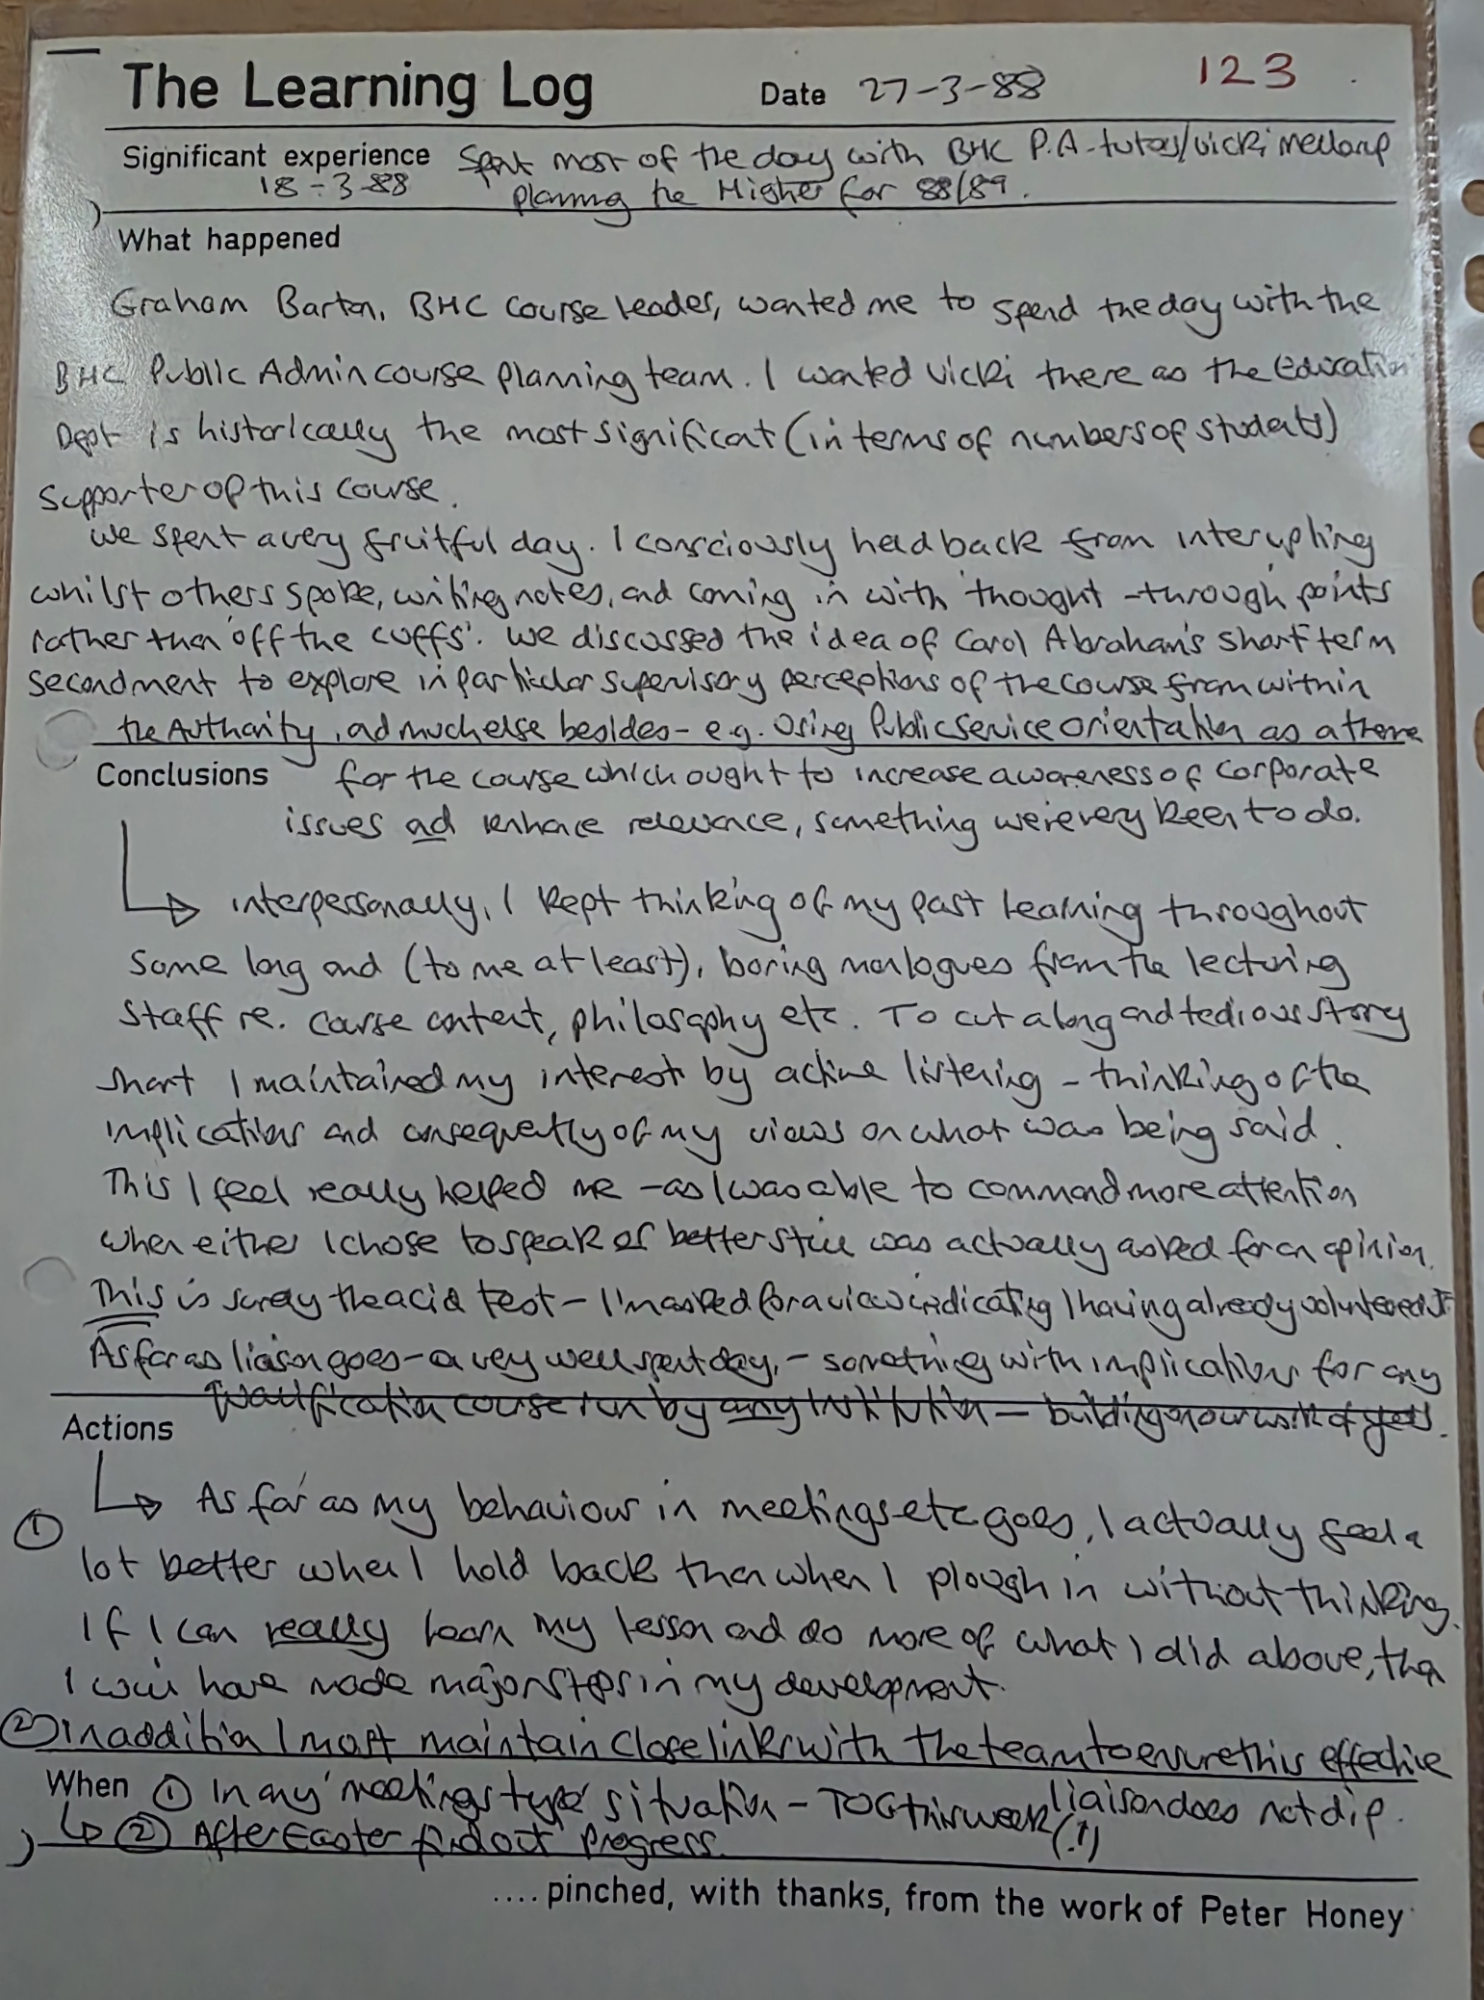 The Learning Log Date 27-3-88 123
Significant experience Spent most of the day with BHC P.A. tutors/Vicki Mellorup
18-3-88 planning the Higher for 88/89.
What happened
Graham Barton, BHC Course Leader, wanted me to spend the day with the
BHC Public Admin course planning team. I wanted Vicki there as the Education
Dept is historically the most significat (in terms of numbers of students)
supporter of this course.
We spent a very fruitful day. I consciously held back from interupting
whilst others spoke, writing notes, and coming in with 'thought-through' points
rather than 'off the cuffs'. We discussed the idea of Carol Abraham's short term
secondment to explore in particular supervisory perceptions of the course from within
the Authority, and much else besides - e.g. using Public Service Orientation as a theme
Conclusions for the course which ought to increase awareness of corporate
issues and enhance relevance, something we're very keen to do.
interpersonally, I kept thinking of my past learning throughout
some long and (to me at least), boring monlogues from the lecturing
staff re. course content, philosophy etc. To cut a long and tedious story
short I maintained my interest by active listening - thinking of the
implications and consequently of my views on what was being said.
This I feel really helped me - as I was able to command more attention
when either I chose to speak or better still was actually asked for an opinion.
This is surely the acid test - I'm asked for a view indicating I having already volunteered it.
As far as liaison goes - a very well spent day, - something with implications for any
qualification course run by any institution - building on our work of years.
Actions
As far as my behaviour in meetings etc goes, I actually feel a
① lot better when I hold back than when I plough in without thinking.
If I can really learn my lesson and do more of what I did above, then
I will have made major steps in my development.
② In addition I must maintain close links with the team to ensure this effective
liaison does not dip.
When ① In any 'meetings type' situation - TOG this week (!)
② After Easter find out progress.
.... pinched, with thanks, from the work of Peter Honey